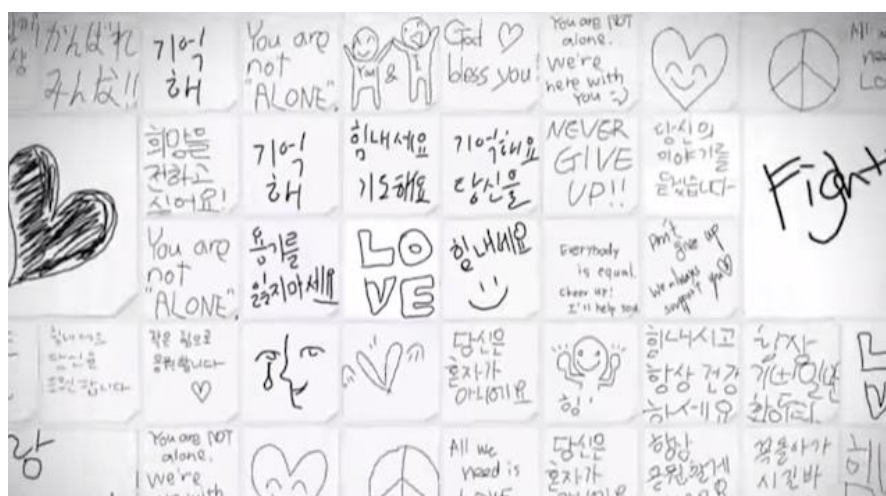 がんばれ
みんな!!
기억
해
You are
not
"ALONE".
You & I
God ♡
bless you!
You are NOT
alone.
We're
here with
You :)
All we
need
희망을
전하고
싶어요!
기억
해
힘내세요
기도해요
기억해요
당신을
NEVER
GIVE
UP!!
당신의
이야기를
듣겠습니다
Fight
You are
not
"ALONE".
용기를
잃지마세요
LO
VE
힘내세요
Everybody
is equal.
cheer up!
I'll help you.
Don't give up
We always
support you♡
힘내세요
당신을
응원합니다
작은 힘으로
응원합니다
♡
당신은
혼자가
아니에요
힘!
힘내시고
항상 건강
하세요
항상
랑
You are NOT
alone.
We're
here with
All we
need is
당신은
혼자가
항상
응원할게
꼭 돌아가
시길 바